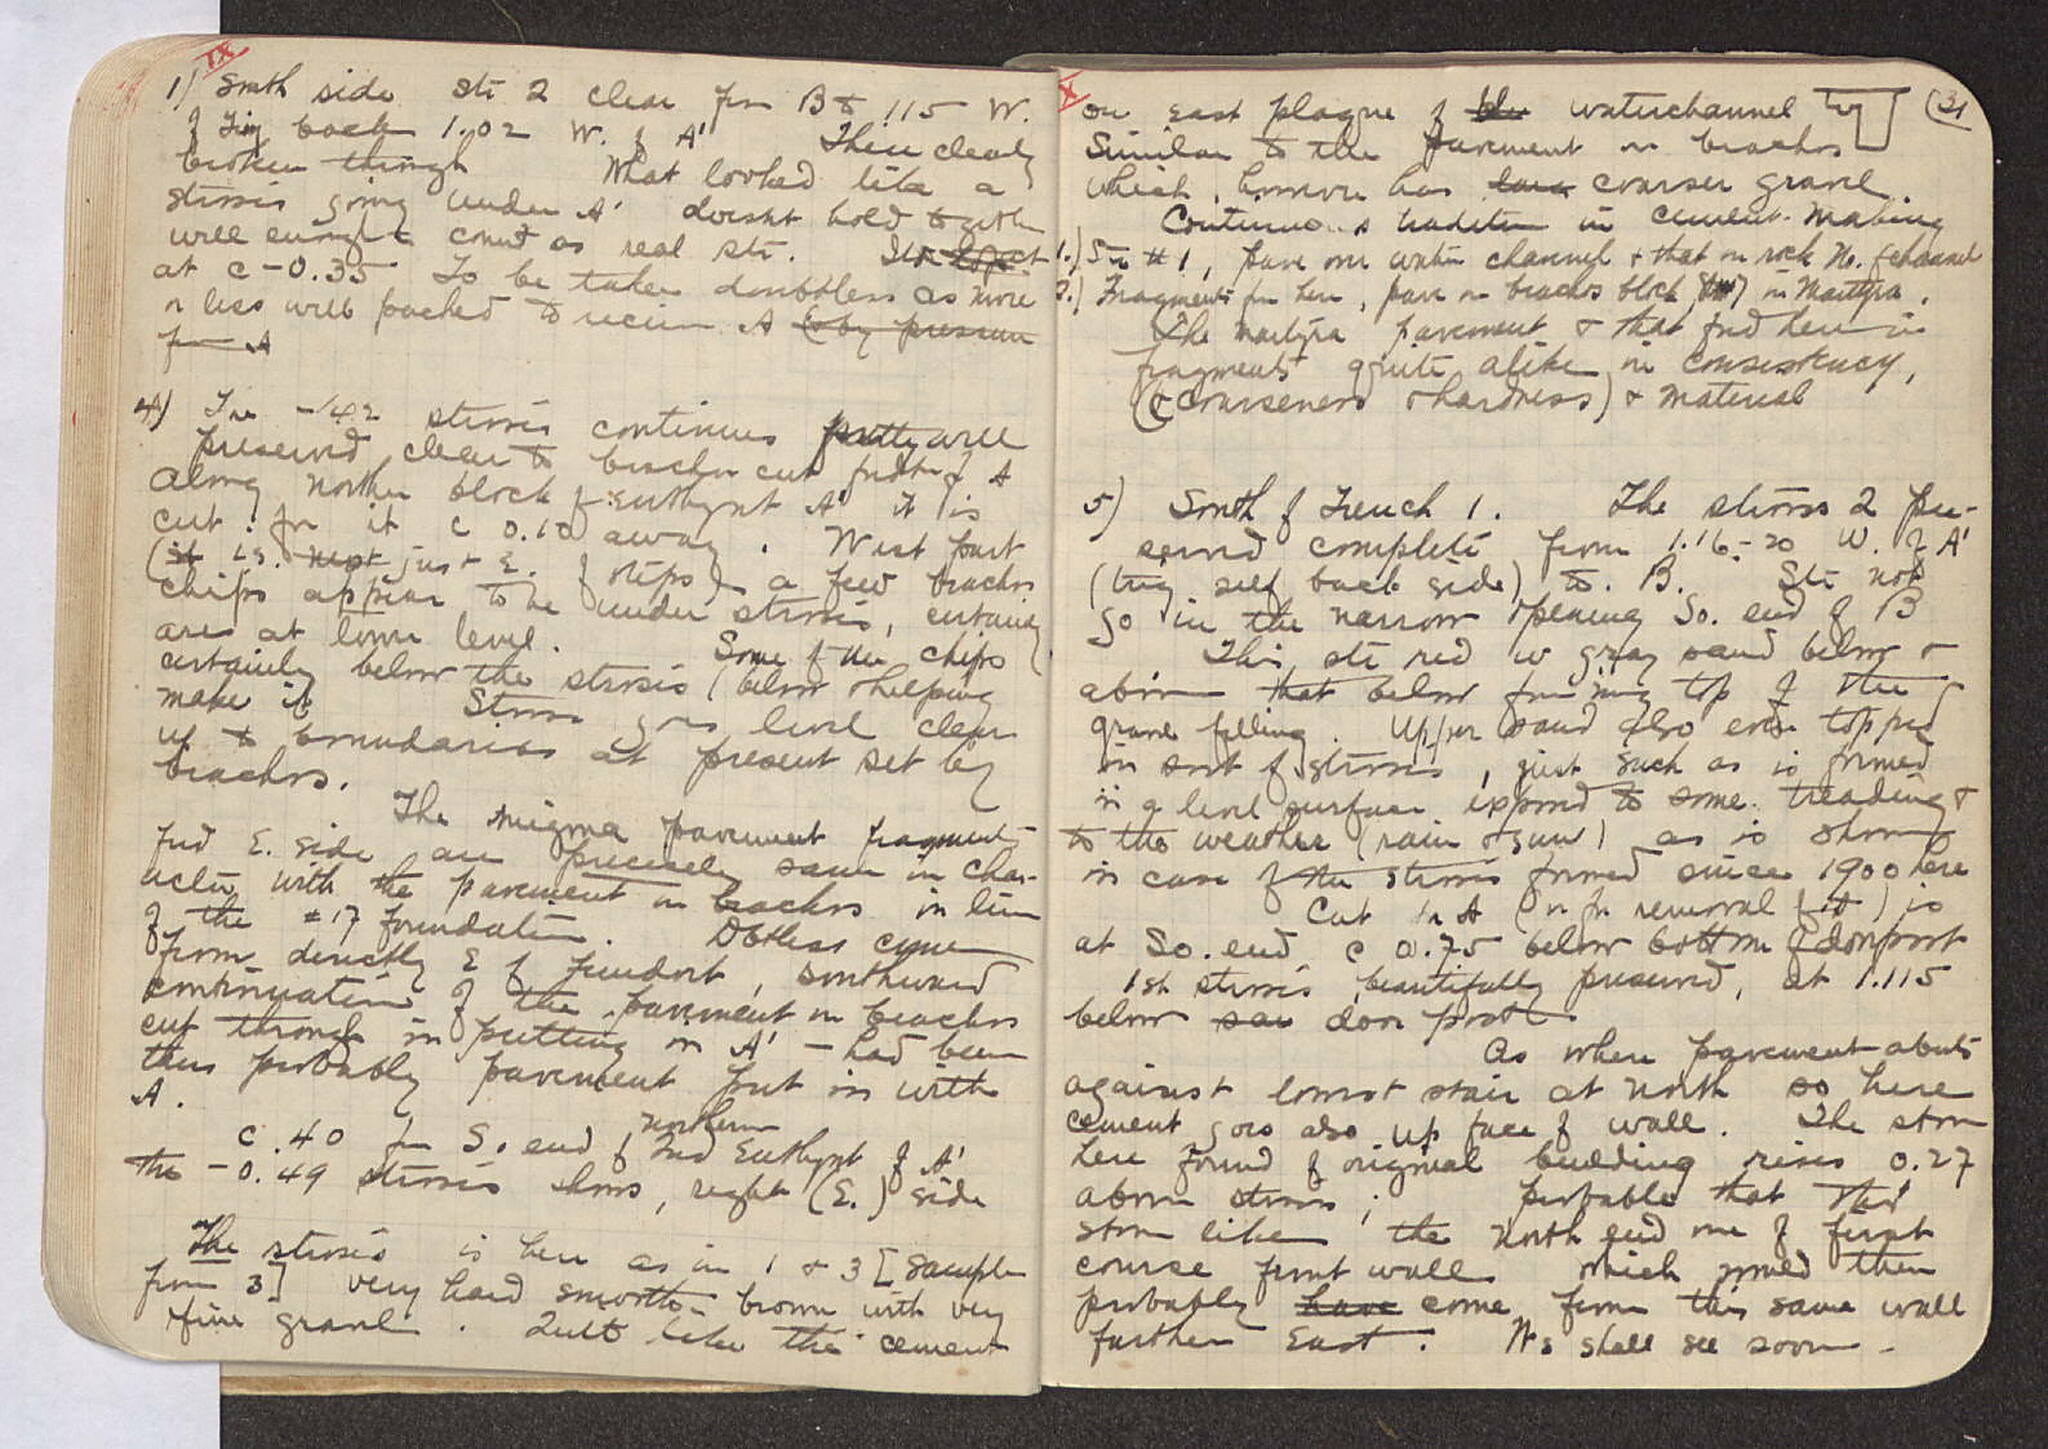 IX
1) South side str 2 clear fm B to .115 W.
of trig back 1.02 W. of A' There clearly
broken through What looked like a
strosis going under A' doesnt hold together
well enough to count as real str. Its
at c -0.35 To be taken doubtless as more
or less well packed to receive A (by pressure
from A
4) The -.42 strosis continues pretty well
preserved clear to brachos cut front of A
Along northern block of Euthynt A' it is
cut for it c 0.10 away. West part
(it is next just E. of steps) a few brachos
chips appear to be under strosis, certainly
are at lower level. Some of the chips
certainly below the strosis (below & helping
make it Strosis goes level clear
up to boundaries at present set by
brachos.
The migma pavement fragments
fnd E. side are precisely same in char-
acter with the pavement on brachos in line
of the #17 foundation. Dbtless came
from directly E of , southward
continuation of the pavement on brachos
cut through in putting in A' - had been
thus probably pavement put in with
A.
c .40 fm S. end of northern 2nd Euthynt of A'
the -0.49 strosis shows, right (E.) side
The strosis is here as in 1 & 3 [sample
from 3] very hard smooth - brown with very
fine gravel. Quite like the cement
X
31
on East plaque of the waterchannel trig
Similar to the pavement on brachos
which, however has coarser gravel.
Continuous tradition in cement-making
1.) Str #1, pave over water channel & that on rock No. of channel
2.) Fragments fm here, pave on brachos block in Martyra.
The Martyra pavement & that fnd here in
fragments quite alike in consistency,
(& coarseness & hardness) & material
5) South of Trench 1. The strosis 2 pre-
served complete from 1.16-20 W. of A'
(trig self back side) to B. Str not
so in the narrow opening So. end of B
This str red w gray sand below &
above that below forming top of the
gravel filling. Upper sand also once topped
in sort of strosis, just such as is formed
in a level surface exposed to some treading &
to the weather (rain & sun) as is shown
in case of the strosis formed since 1900 here
Cut in A (or for removal of it) is
at So. end c 0.75 below bottom of doorpost
1st strosis, beautifully preserved, at 1.115
below door post
As where pavement abuts
against lowest stair at north so here
cement goes also up face of wall. The stone
here found of original building rises 0.27
above strosis; probable that this
stone like the north end one of first
course front wall which would then
probably have come from this same wall
further East. We shall see soon -